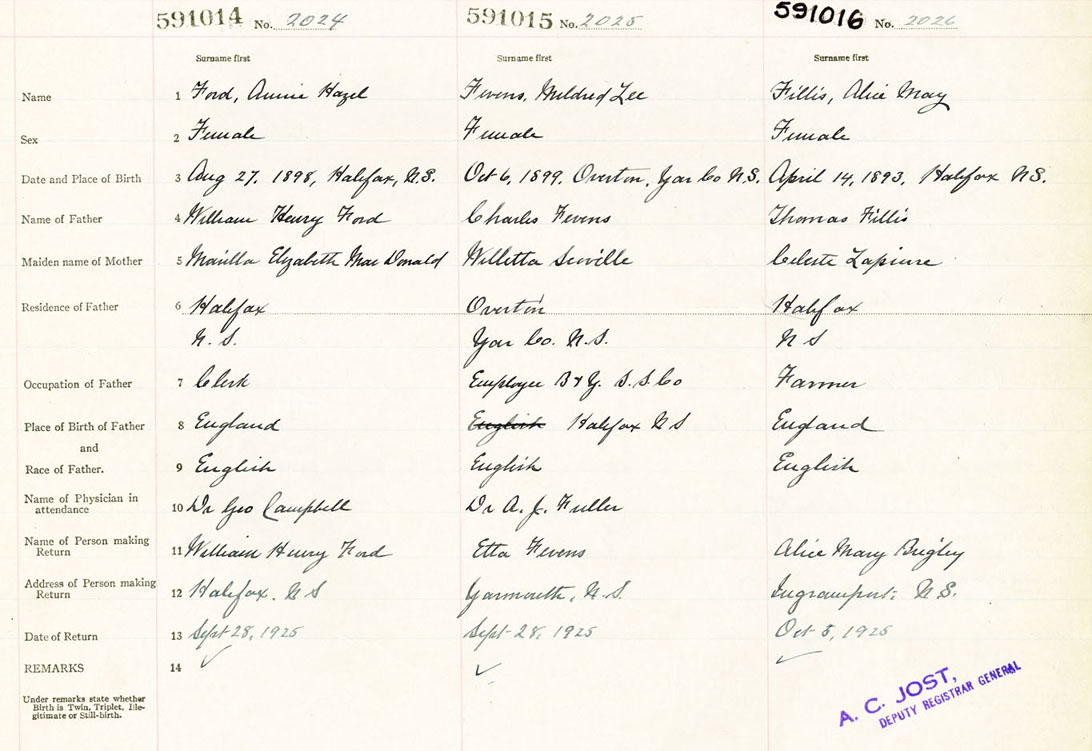 591014 No. 2024 591015 No. 2025 591016 No. 2026
Surname first Surname first Surname first
Name 1 Ford, Annie Hazel Fevens, Mildred Lee Fillis, Alice May
Sex 2 Female Female Female
Date and Place of Birth 3 Aug 27, 1898, Halifax, N.S. Oct 6, 1899, Overton, Yar Co N.S. April 14, 1893, Halifax NS.
Name of Father 4 William Henry Ford Charles Fevens Thomas Fillis
Maiden name of Mother 5 Elizabeth MacDonald Willetta Celeste
Residence of Father 6 Halifax Overton Halifax
N. S. Yar Co. N.S. N S
Occupation of Father 7 Clerk Employee B & Y. S. S. Co Farmer
Place of Birth of Father 8 England English Halifax N S England
and
Race of Father. 9 English English English
Name of Physician in
attendance 10 Dr Geo Campbell Dr A. J. Fuller
Name of Person making
Return 11 William Henry Ford Etta Fevens Alice Mary Brigley
Address of Person making
Return 12 Halifax. N S Yarmouth, N.S. Ingramport, N.S.
Date of Return 13 Sept 28, 1925 Sept 28, 1925 Oct 5, 1925
REMARKS 14
Under remarks state whether
Birth is Twin, Triplet, Ille-
gitimate or Still-birth.
A. C. JOST,
DEPUTY REGISTRAR GENERAL